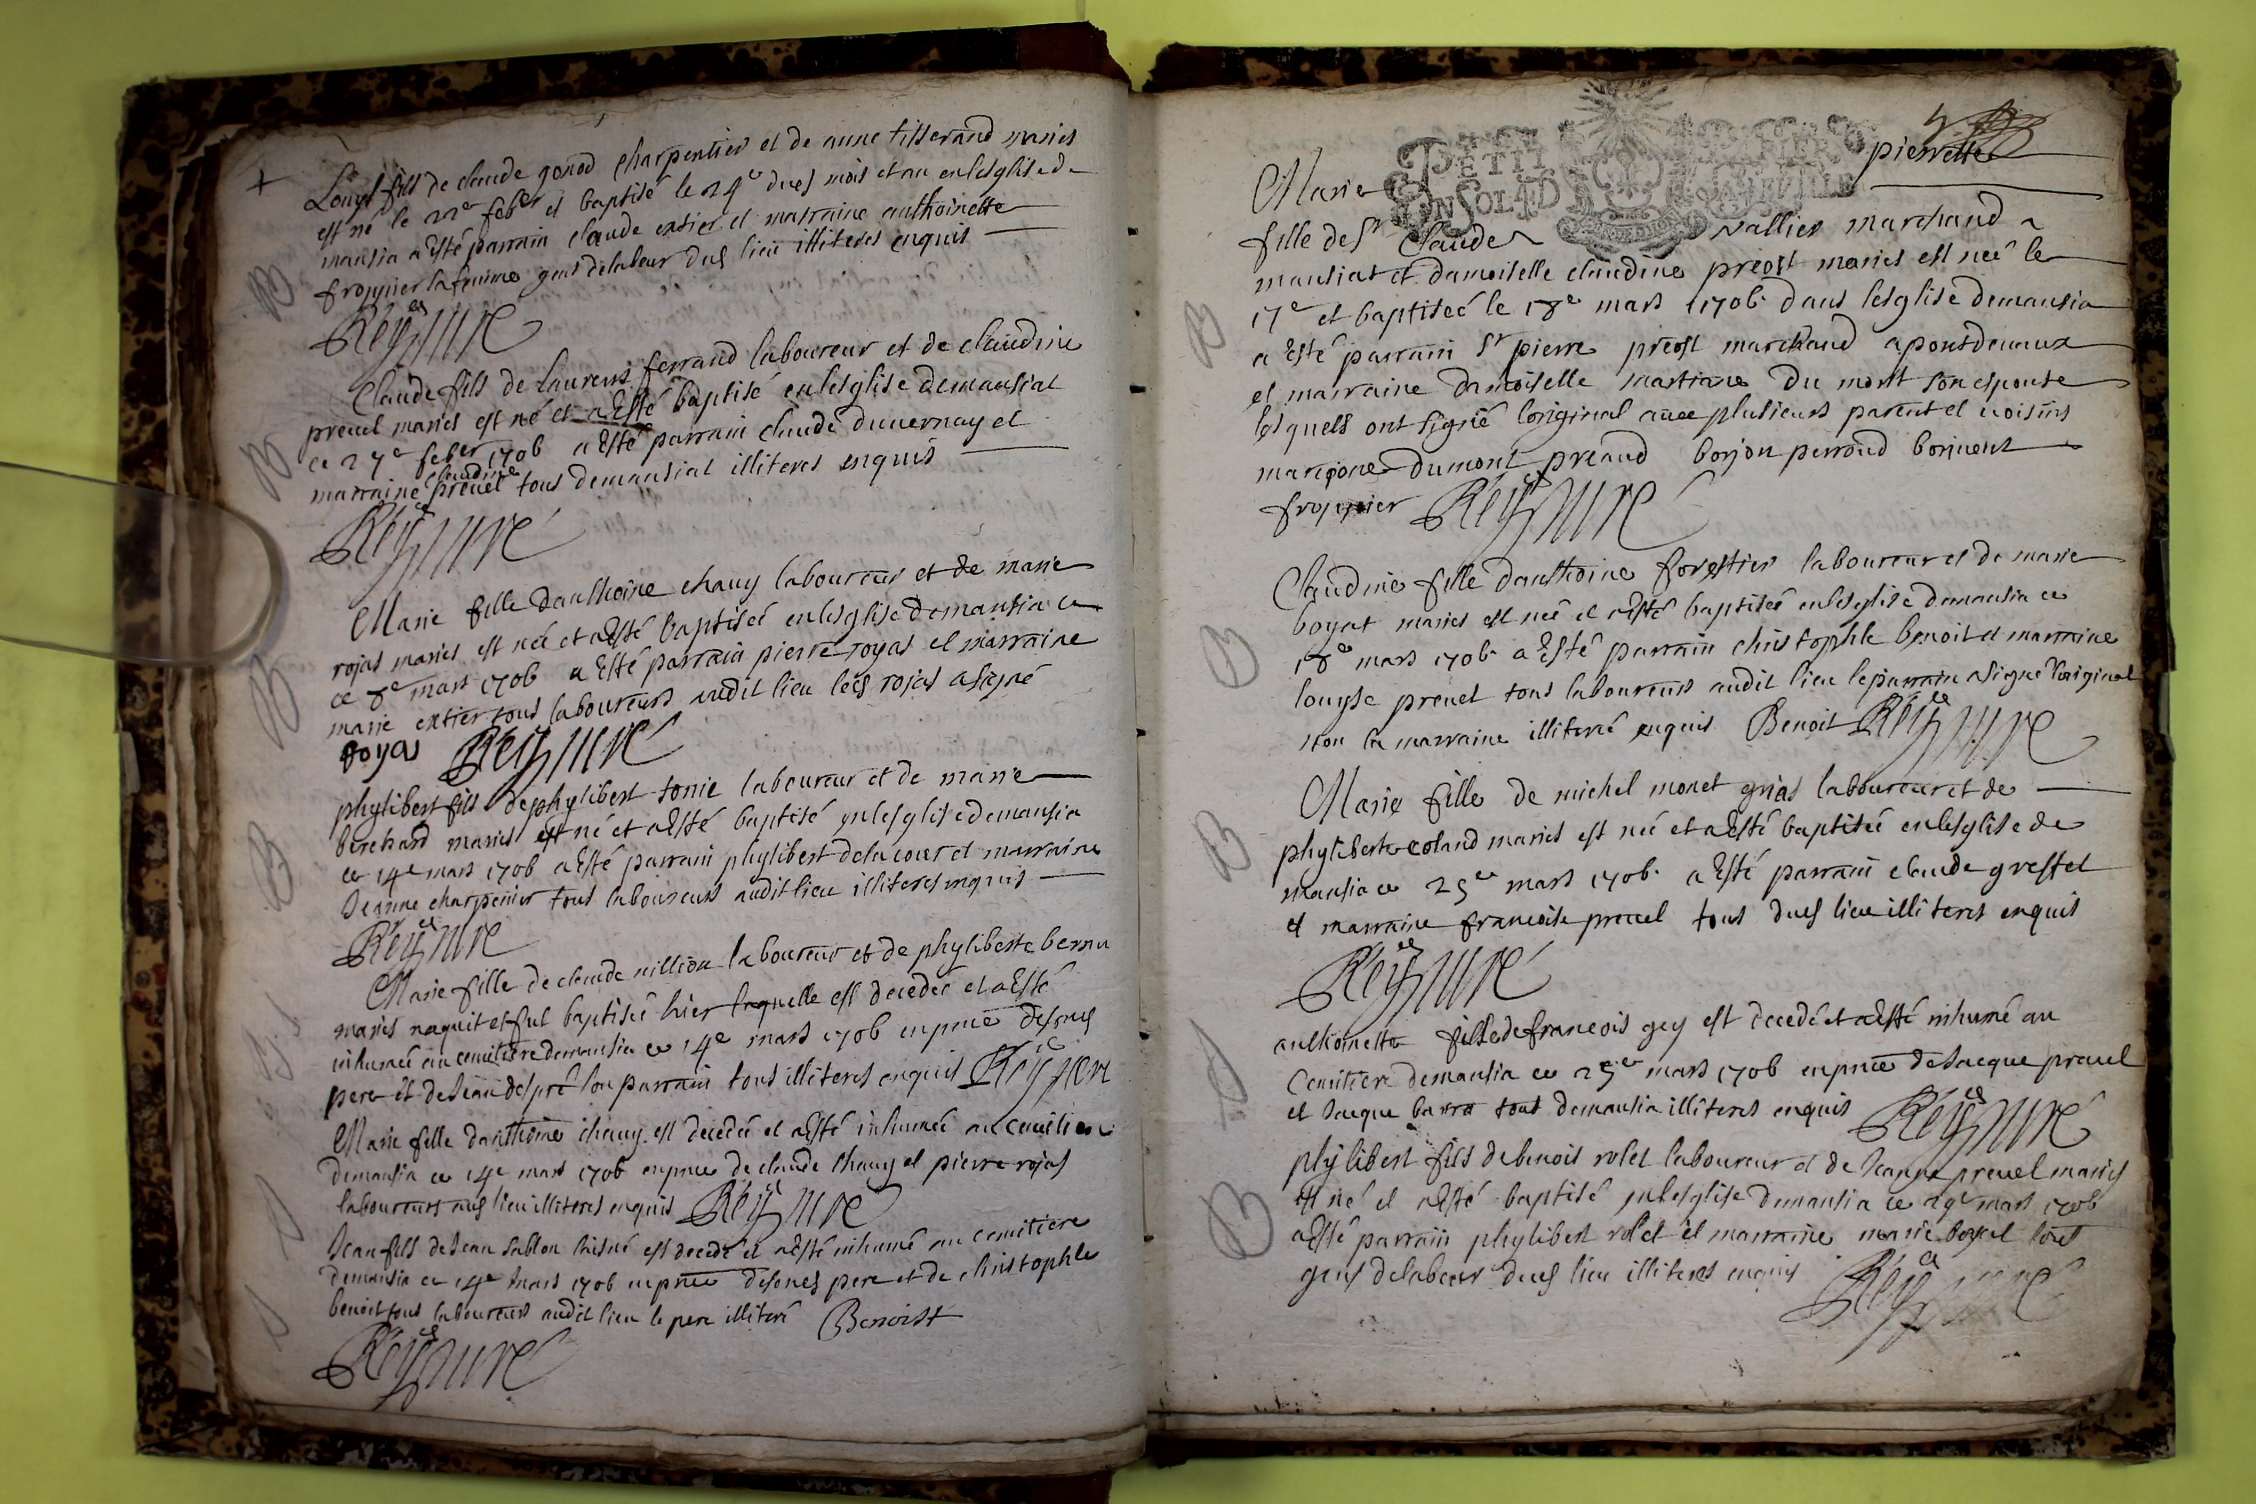 Louys fils de claude gonod charpentier et de anne tisserand maries
est né le 22e feber et baptisé le 24e dues mois et an en lesglise de
mansia a Esté parrain claude extier et marraine anthoinette
fropier sa femme gens de labeur dud lieu illiteres enquis
Rey curé
B
Claude fils de Laurens ferrand laboureur et de claudine
preuel maries est né et a Esté baptisé en lesglise de mansiat
ce 27e feber 1706 a Esté parrain claude duuernay et
claudine
marraine preuel tous de mansiat illiteres enquis
Rey curé
B
Marie fille danthoine chauy laboureur et de marie
rojas maries est née et a Esté baptisée en lesglise de mansia ce
ce 8e mars 1706 a Esté parrain pierre royas et marraine
marie extier tous laboureurs audit lieu led rojas a signé
royas Rey curé
B
phylibert fils de phylibert tonie laboureur et de marie
berchard maries est né et a Esté baptisé en lesglise de mansia
ce 14e mars 1706 a Esté parrain phylibert delacour et marraine
Jeanne charpenier tous laboureurs audit lieu illiteres enquis
Rey curé
B
Marie fille de claude nillion laboureur et de phyliberte bernu
maries naquit et fut baptisée hier laquelle est decedée et a Esté
inhumée au cemitiere de mansia ce 14e mars 1706 en pnce de sond
pere et de Jean despré son parrain tous illiteres enquis Rey curé
Marie fille danthoine chauy est decedée et a Esté inhumée au cemitiere
de mansia ce 14e mars 1706 en pnce de claude chauy et pierre rojas
laboureurs aud lieu illiteres enquis Rey curé
Jean fils de Jean sablon laisné est decedé et a Esté inhumé au cemitiere
de mansia ce 14e mars 1706 en pnce de sond pere et de christophle
benoit tous laboureurs audit lieu le pere illiteré Benoist
Rey curé
PETIT PAPIER
pierrette
Marie
fille de Sr Claude vallier marchand a
mansiat et damoiselle claudine preost maries est neé le
17e et baptiseé le 18e mars 1706 dans lesglise de mansia
a Esté parrain Sr pierre preost marchand a pontdevaux
et marraine damoiselle mariane du mont son espouse
lesquels ont signé loriginal auec plusieurs parent et uoisins
mariane dumont preaud borjon perroud borjuent
fropier Rey curé
B
Claudine fille danthoine forestier laboureur et de marie
boyat maries est neé et a Esté baptiseé en lesglise de mansia ce
18e mars 1706 a Esté parrain christophle benoit et marraine
louyse preuel tous laboureurs audit lieu le parrain a signé loriginal
non la marraine illiteré enquis Benoit Rey curé
Marie fille de michel monet grias laboureur et de
phyliberte coland maries est neé et a Esté baptiseé en lesglise de
mansia ce 25e mars 1706 a Esté parrain claude greffet
et marraine francoise preuel tous dud lieu illiteres enquis
Rey curé
B
anthoinette fille de francois gey est decedé et a Esté inhumé au
cemitiere de mansia ce 25e mars 1706 en pnce de Jacque preuel
et Jacque barra tous de mansia illiteres enquis Rey curé
phylibert fils de benoit rolet laboureur et de Jeanne preuel maries
est né et a Esté baptisé en lesglise de mansia ce 29e mars 1706
a Esté parrain phylibert rolet et marraine marie boyat tout
gens de labeur dud lieu illiteres enquis Rey curé
B